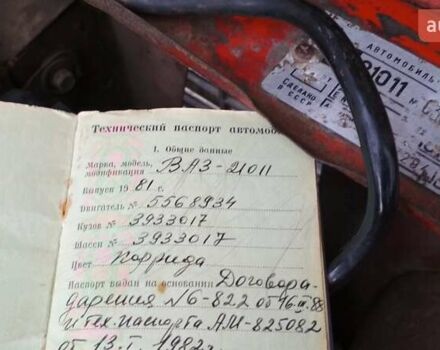 Технический паспорт автомоб
I. Общие данные
Марка, модель,
модификация ВАЗ-21011
Выпуск 1981 г.
Двигатель № 5568934
Кузов № 3933017
Шасси № 3933017
Цвет Коррида
Паспорт выдан на основании Договора-
дарения №6-822 от 16.III.88
и тех.паспорта АМ-825082
от 13.I.1982г.
АВТОМОБИЛЬ
21011
СДЕЛАНО
В СССР